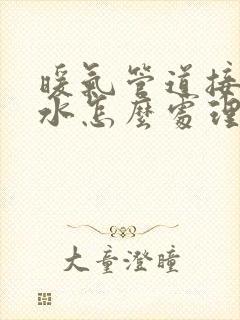 暖氣管道接
水怎麼處理
大童澄瞳